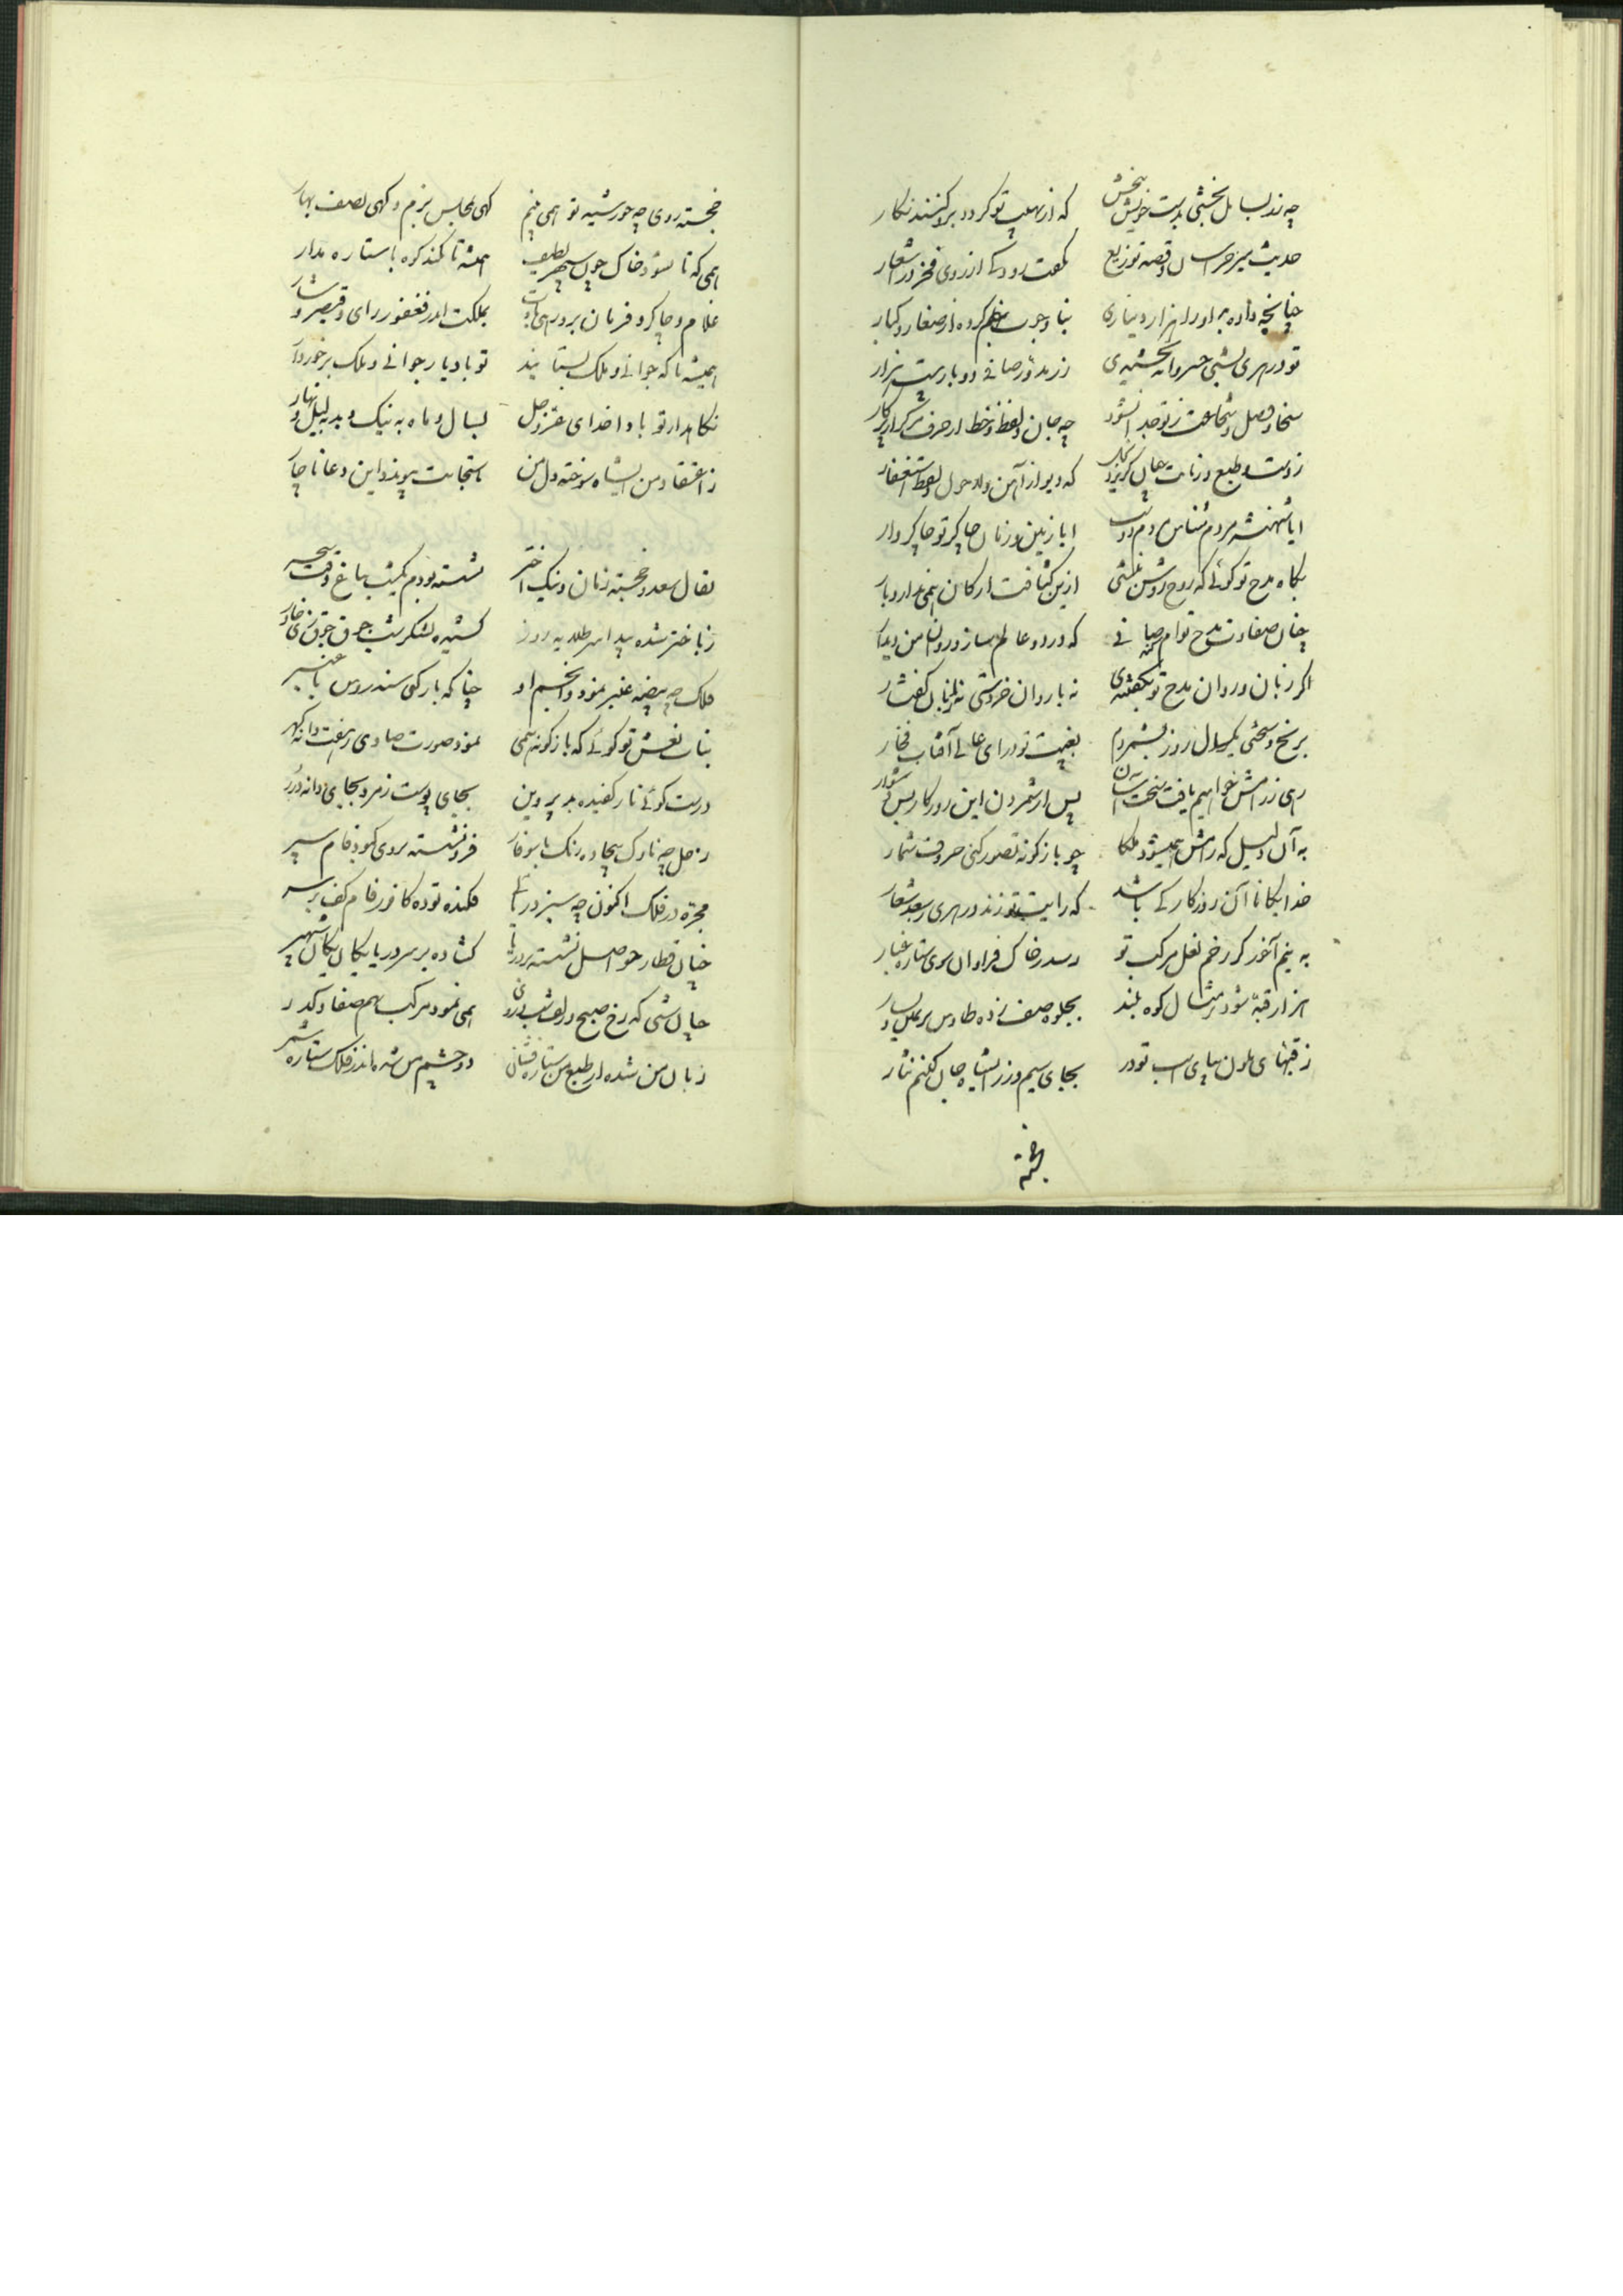 چه زند بسایل بخشی بدست خویش ببخش که از نهیب تو گردد برو گزنند نگار
حدیث میر خراسان و قصه توزیع بگفت رودکی از روی فخر در اشعار
چنانچه داده بد او را هزار دیناری بنا وجوب بهم کرده از صغار و کبار
تو در هری بشبی خسروانه بخشیدی زر مدور صافی دو بار بیست هزار
سخا و فضل و شجاعت ز تو جدا نشود چه جان و لفظ و خط از حرف و مرکز از پرکار
که دیو از آهن و لاحول و لفظ استغفار
ایا شهنشه مردم شناس مردم دوست ابا زمین و زمان چاکر تو چاکروار
بگاه مدح تو گوئی که روح روشن گشتی ازین کثافت ارکان همی ندارد بار
چنان صفاوت مدح توام صیانی که در دو عالم ساز و روان من دیدار
اگر زبان و روان مدح تو نگفتندی نه با روان خردستی نه با زبان گفتار
برنج و سختی یکسال روز بشمردم بغیبت تو درای عالی آفتاب فخار
پس از شمردن این روزگار بس دشوار
به آن دلیل که رامش همیشود ملکا چو بازگونه تصور کنی حروف شمار
خدایگانا آن روزگار کی باشد که رایت تو زند در هری بسعد شعار
به بینم آخر کز زخم نعل مرکب تو رسد ز خاک فراوان سوی ستاره غبار
هزار قبه شود بر مثال کوه بلند بجلوه صف زده طاوس بر یمین و یسار
ز قبهای ملون بپای اسب تو در بجای سیم و زر ایشاه جان کنیم نثار
خجسته
خجسته روی چه خورشید تو همی بینم گهی بمجلس بزم و گهی بصف بهار
همی که تا نشود خاک چون سپهر لطیف همیشه تا نکند کوه با ستاره مدار
غلام و چاکر و فرمان بر و رهی بادت بملکت اندر فغفور و رای و قیصر و شار
همیشه تا که جوانی و ملک بستایند تو باد یار جوانی و ملک برخوردار
نگاهدار تو بادا خدای عز و جل بسال و ماه به نیک و بد به لیل و نهار
ز اعتقاد من ایشاه سوخته دل من باستجابت پیوند و این دعا ناچار
بفال سعد و خجسته زمان و نیک اختر نشسته بودم یکشب بباغ وقت سحر
ز باختر شده پیدا سر طلایه روز کشیده لشکر شب جوق جوق زی خاور
فلک چه بیضه عنبر نمود و انجم او چنانکه بار کنی سندروس با عنبر
بنات نعش تو گوئی که بازگونه همی نمود صورت صادی ز هفت دانه گهر
درست گوئی نار کفیده بد پروین بجای پوست زمرد بجای دانه درر
زحل چه ناوک بیجاده رنگ با سوفار فرو نشسته بروی کبودفام سپر
مجره در فلک اکنون چه سبز دریائی فکنده توده کافورفام کف بر سر
چنان قطار حواصل نشسته بر دریا گشاده بر سر دریا یکان یکان شهپر
چنان شبی که رخ صبح و زلف شب بر وی همی نمود مرکب بهم صفا و کدر
زبان من شده از طبع من ستاره فشان دو چشم من شده اندر فلک ستاره شمر